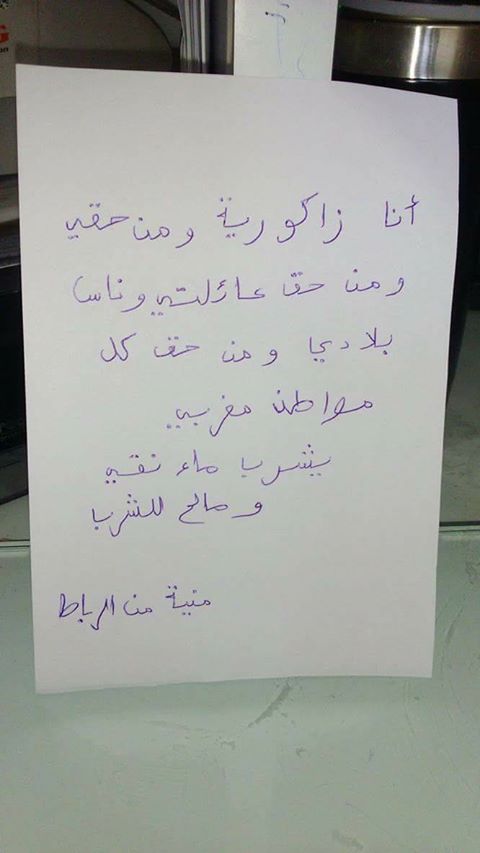 أنا زاكورية ومن حقي
ومن حق عائلتي وناس
بلادي ومن حق كل
مواطن مغربي
يشرب ماء نقي
وصالح للشرب
منية من الرباط